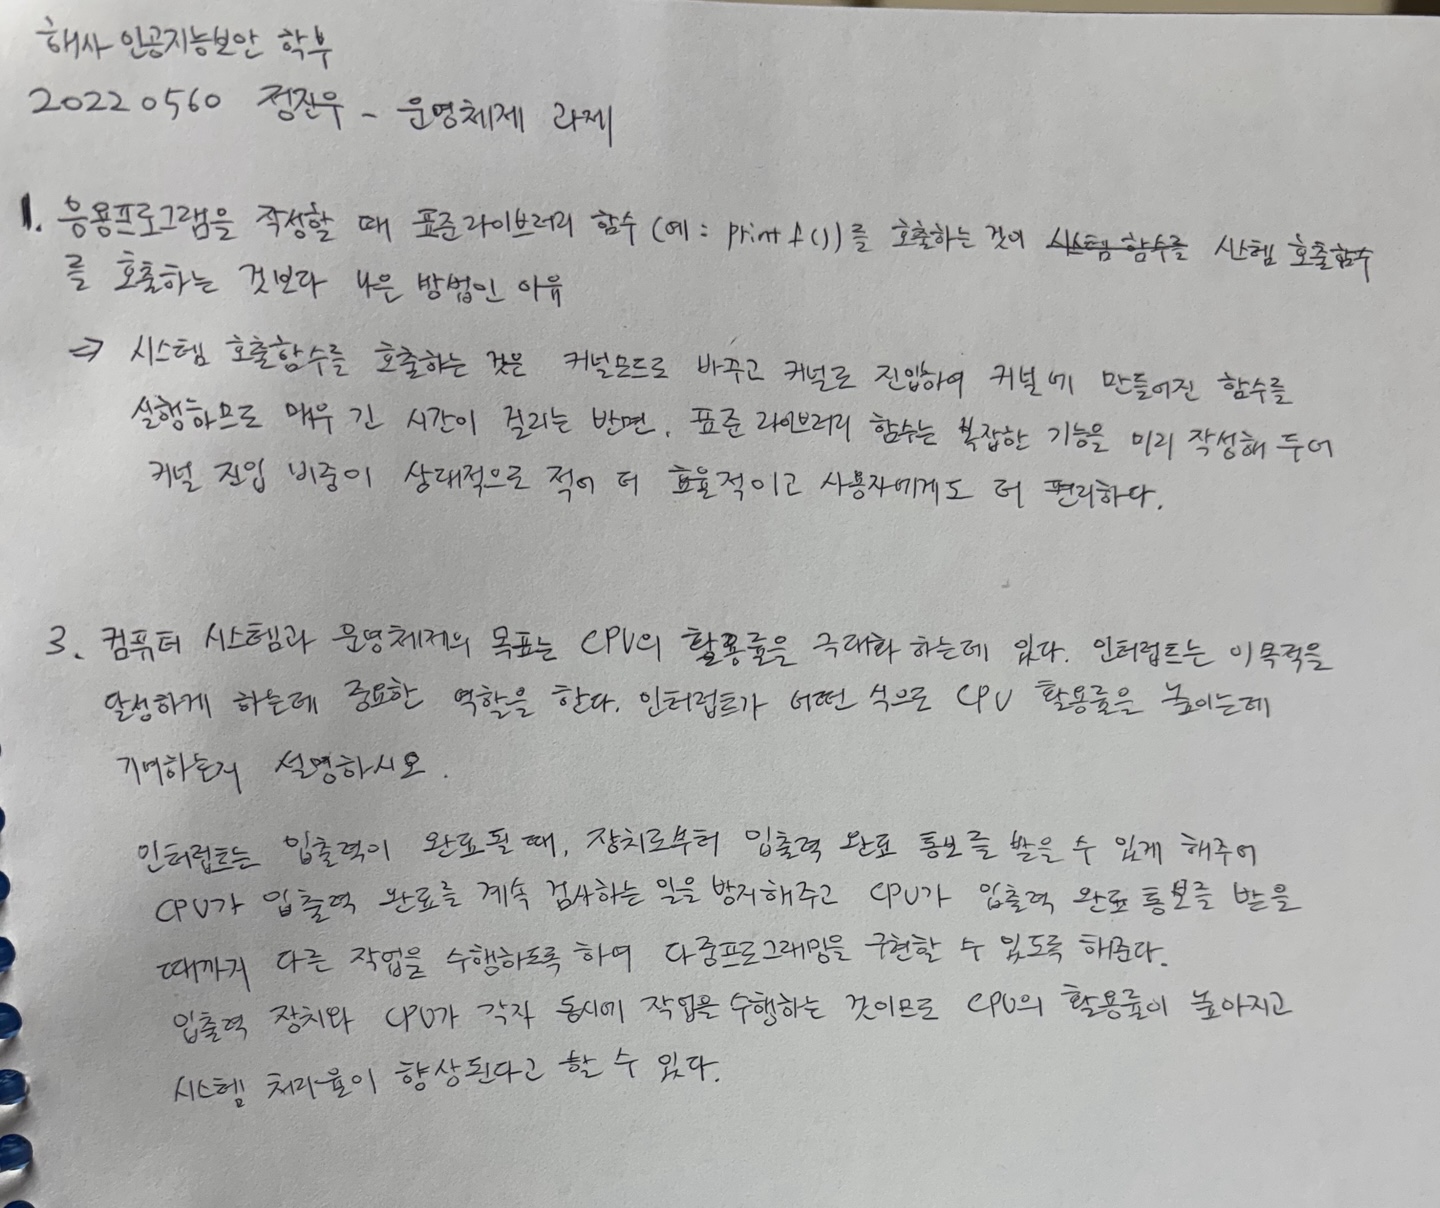 해사 인공지능보안 학부
20220560 정진우 - 운영체제 과제
1. 응용프로그램을 작성할 때 표준라이브러리 함수 (예: printf())를 호출하는 것이 시스템 함수를 시스템 호출함수
를 호출하는 것보다 나은 방법인 이유
⇒ 시스템 호출함수를 호출하는 것은 커널모드로 바꾸고 커널로 진입하여 커널에 만들어진 함수를
실행하므로 매우 긴 시간이 걸리는 반면, 표준 라이브러리 함수는 복잡한 기능을 미리 작성해 두어
커널 진입 비중이 상대적으로 적어 더 효율적이고 사용자에게도 더 편리하다.
3. 컴퓨터 시스템과 운영체제의 목표는 CPU의 활용률을 극대화 하는데 있다. 인터럽트는 이 목적을
달성하게 하는데 중요한 역할을 한다. 인터럽트가 어떤 식으로 CPU 활용률을 높이는데
기여하는지 설명하시오.
인터럽트는 입출력이 완료될 때, 장치로부터 입출력 완료 통보를 받을 수 있게 해주어
CPU가 입출력 완료를 계속 검사하는 일을 방지해주고 CPU가 입출력 완료 통보를 받을
때까지 다른 작업을 수행하도록 하여 다중프로그래밍을 구현할 수 있도록 해준다.
입출력 장치와 CPU가 각자 동시에 작업을 수행하는 것이므로 CPU의 활용률이 높아지고
시스템 처리율이 향상된다고 할 수 있다.